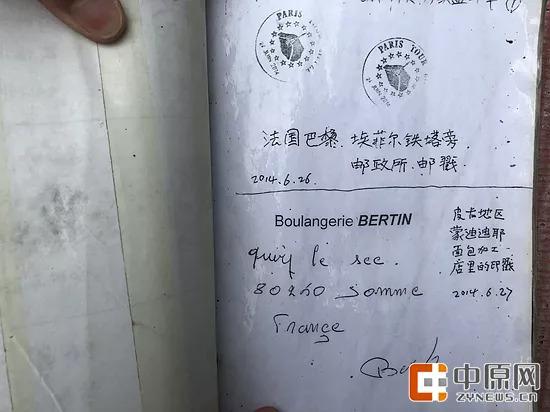 PARIS
PARIS TOUR
法国巴黎.埃菲尔铁塔旁
邮政所.邮戳
2014.6.26.
Boulangerie BERTIN
le sec
80260 Somme
France
皮卡地区
蒙迪迪耶
面包加工
店里的印戳
2014.6.27
中原网
ZYNEWS.CN